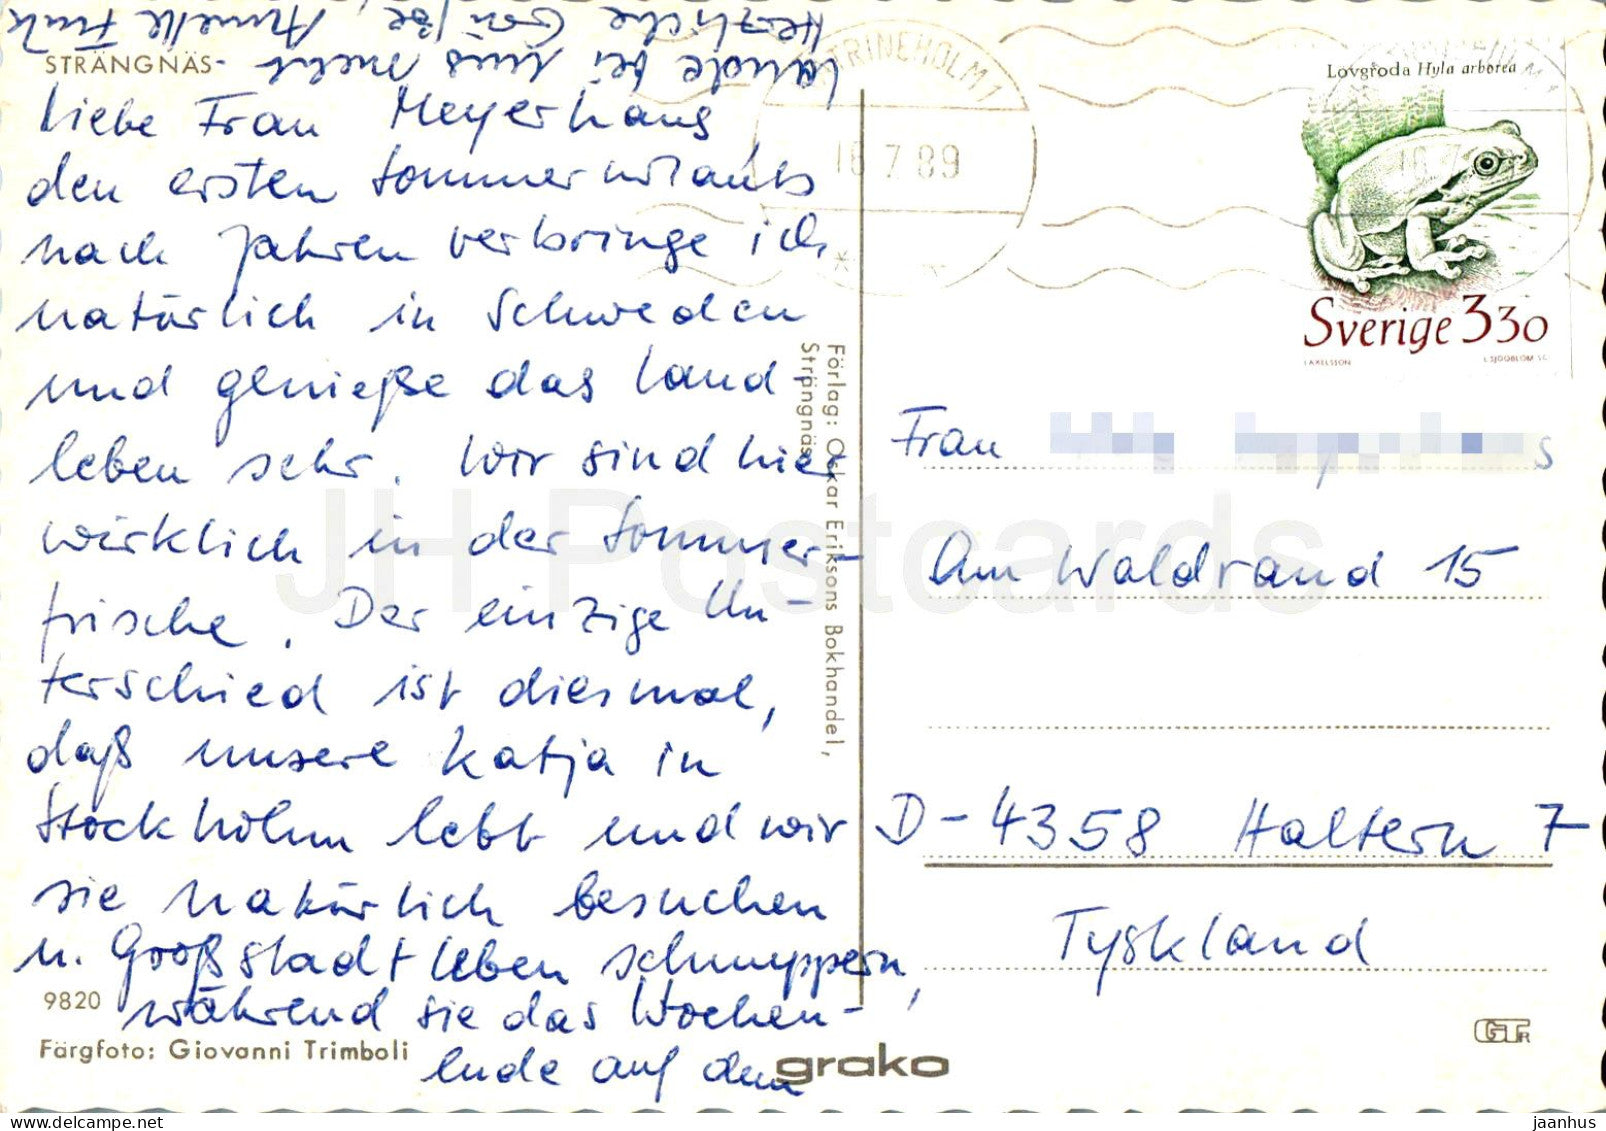 STRÄNGNÄS
Liebe Frau Meyerhans
den ersten Sommerurlaub
nach Jahren verbringe ich
natürlich in Schweden
und genieße das Land-
leben sehr. Wir sind hier
wirklich in der Sommer-
frische. Der einzige Un-
terschied ist diesmal,
daß unsere Katja in
Stockholm lebt und wir
sie natürlich besuchen
u. Großstadtleben schnuppern,
während sie das Wochen-
ende auf dem
Lande bei uns
Herzliche Grüße, Annelle Funk
9820
Färgfoto: Giovanni Trimboli
Förlag: Oskar Eriksons Bokhandel,
Strängnäs
grako
KATRINEHOLM 1
16 7 89
Lövgroda Hyla arborea
Sverige 3 30
L SJÖÖBLOM SC
Frau
Am Waldrand 15
D-4358 Haltern 7
Tyskland
JH Postcards
www.delcampe.net
janhus